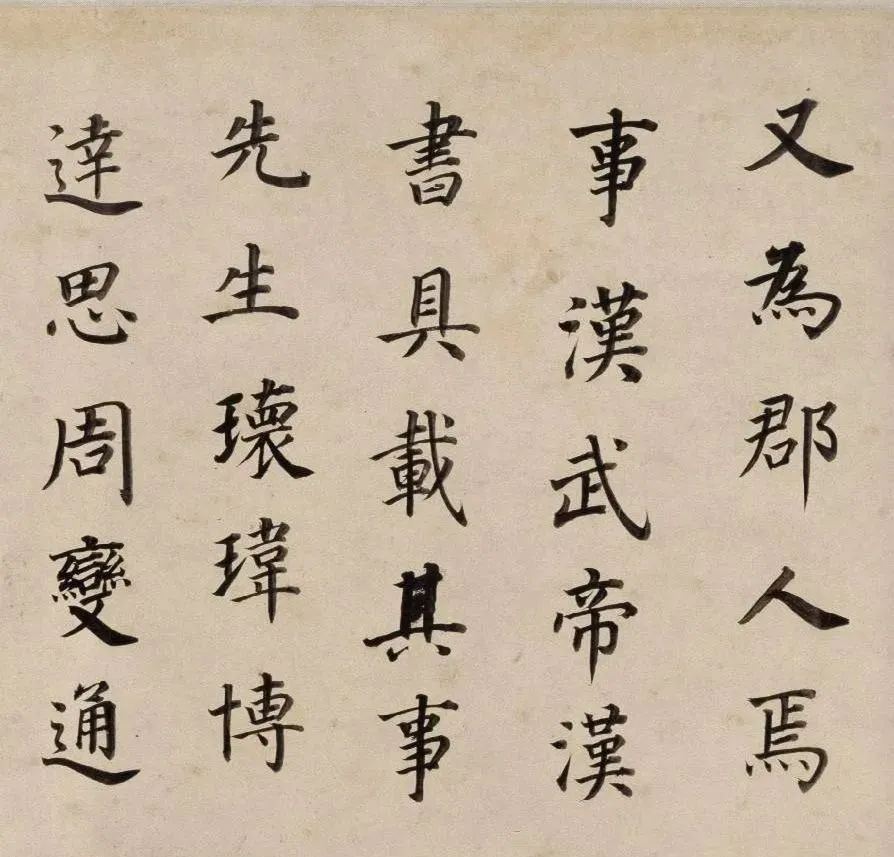 又為郡人焉
事漢武帝漢
書具載其事
先生瓌瑋博
達思周變通